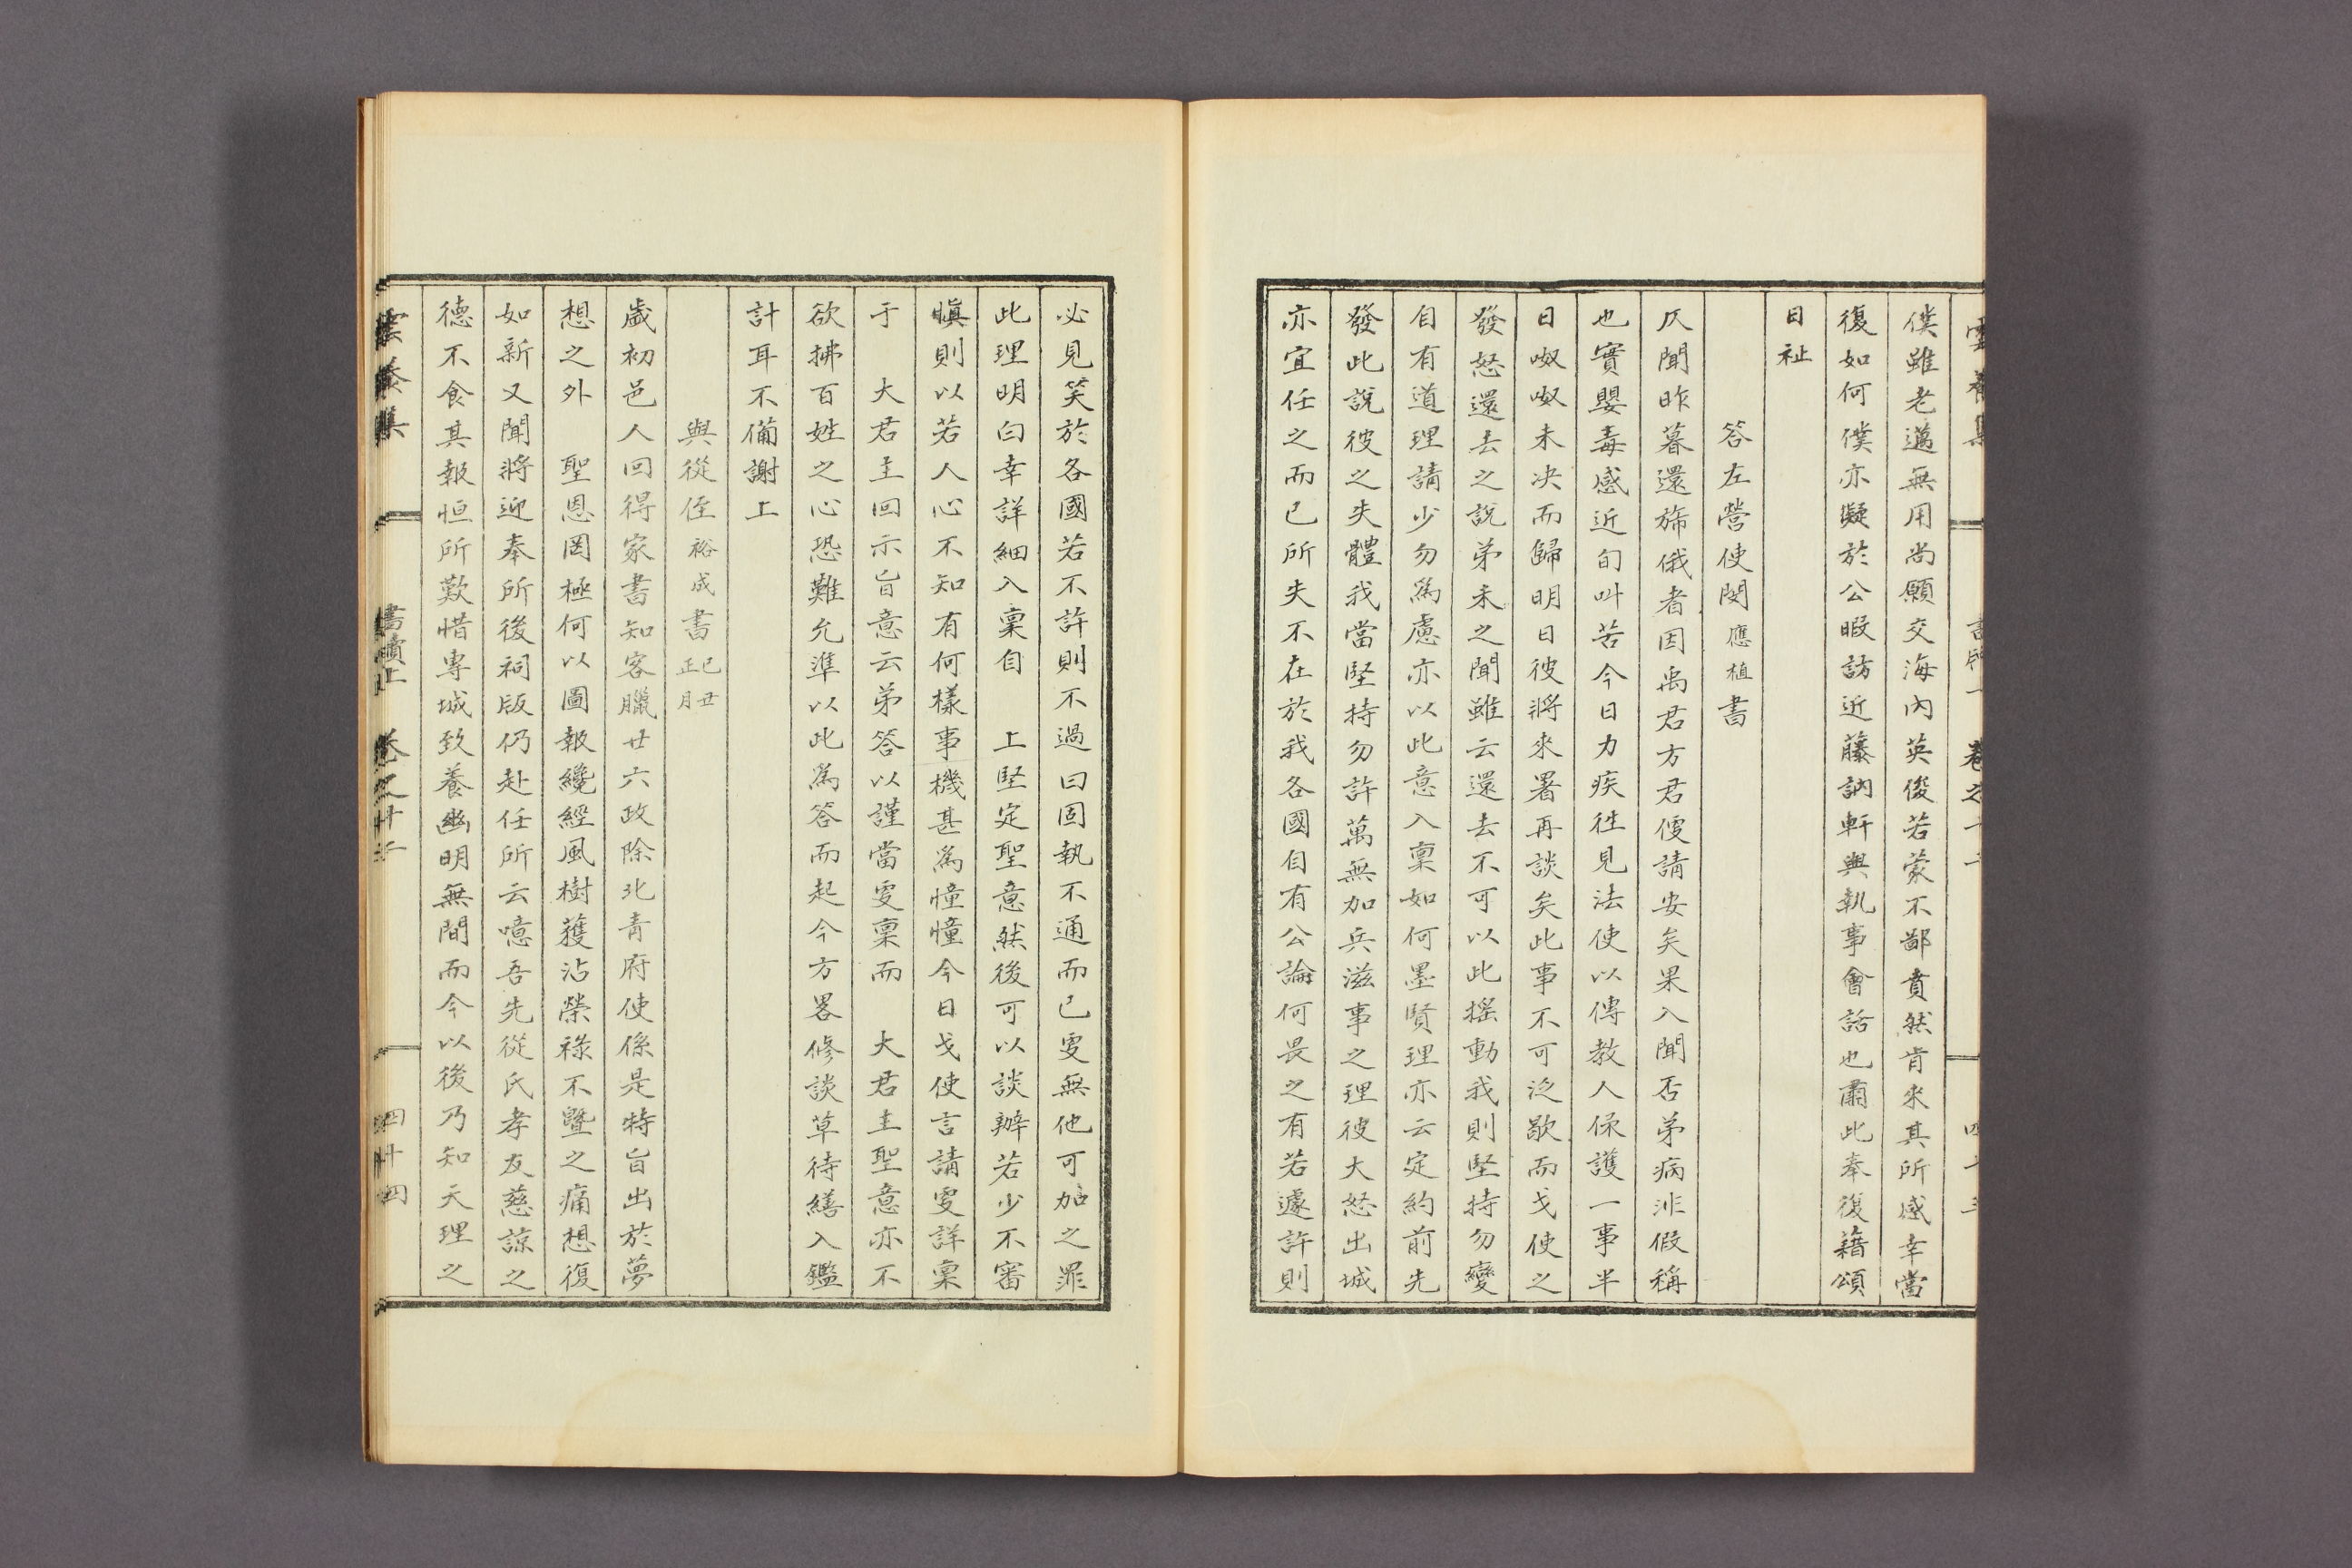 僕雖老邁無用尚願交海內英俊若蒙不鄙賁然肯來其所感幸當
復如何僕亦凝於公暇訪近藤訥軒與執事會話也肅此奉復藉頌
日祉
答左營使閔應植書
仄聞昨暮還旆俄者因禹君方君便請安矣果入聞否弟病非假稱
也實嬰毒感近旬叫苦今日力疾徃見法使以傳教人保護一事半
日呶呶未决而歸明日彼將來署再談矣此事不可泛歇而戈使之
發怒還去之說弟未之聞雖云還去不可以此搖動我則堅持勿變
自有道理請少勿爲慮亦以此意入稟如何墨賢理亦云定約前先
發此說彼之失體我當堅持勿許萬無加兵滋事之理彼大怒出城
亦宜任之而已所失不在於我各國自有公論何畏之有若遽許則
必見笑於各國若不許則不過曰固執不通而已更無他可加之罪
此理明白幸詳細入稟自　上堅定聖意然後可以談辦若少不審
愼則以若人心不知有何樣事機甚爲憧憧今日戈使言請更詳稟
于　大君主回示旨意云弟答以謹當更稟而　大君主聖意亦不
欲拂百姓之心恐難允準以此爲答而起今方畧修談草待繕入鑑
計耳不備謝上
與從侄裕成書己丑正月
歲初邑人回得家書知客臘廿六政除北青府使係是特旨出於夢
想之外　聖恩罔極何以圖報纔經風樹獲沾榮祿不曁之痛想復
如新又聞將迎奉所後祠版仍赴任所云噫吾先從氏孝友慈諒之
德不食其報恒所歎惜專城致養幽明無間而今以後乃知天理之
雲養集　書牘上　卷之十二　四十四